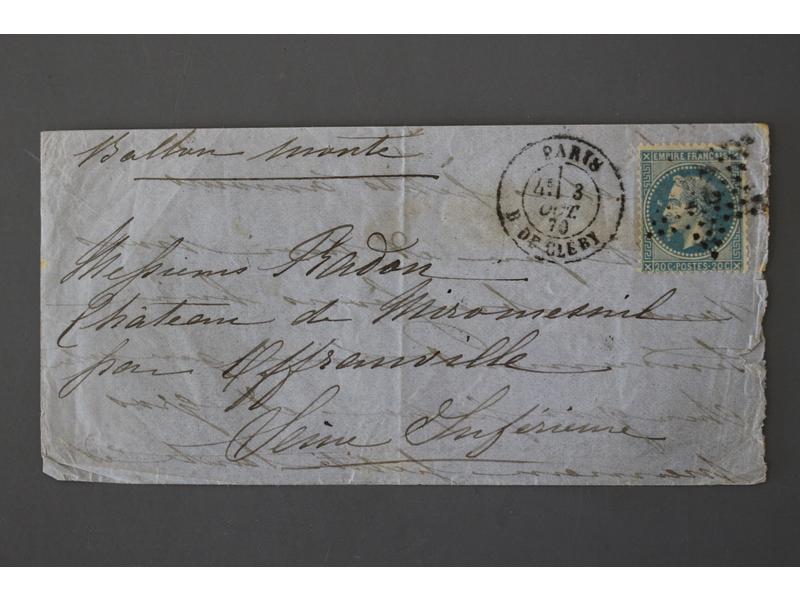 Ballon monté
PARIS
4E 3
OCT.
70
B. DE CLERY
EMPIRE FRANÇAIS
20C·POSTES·20C
Messieurs Radon
Château de Miromesnil
par Offranville
Seine Inférieure